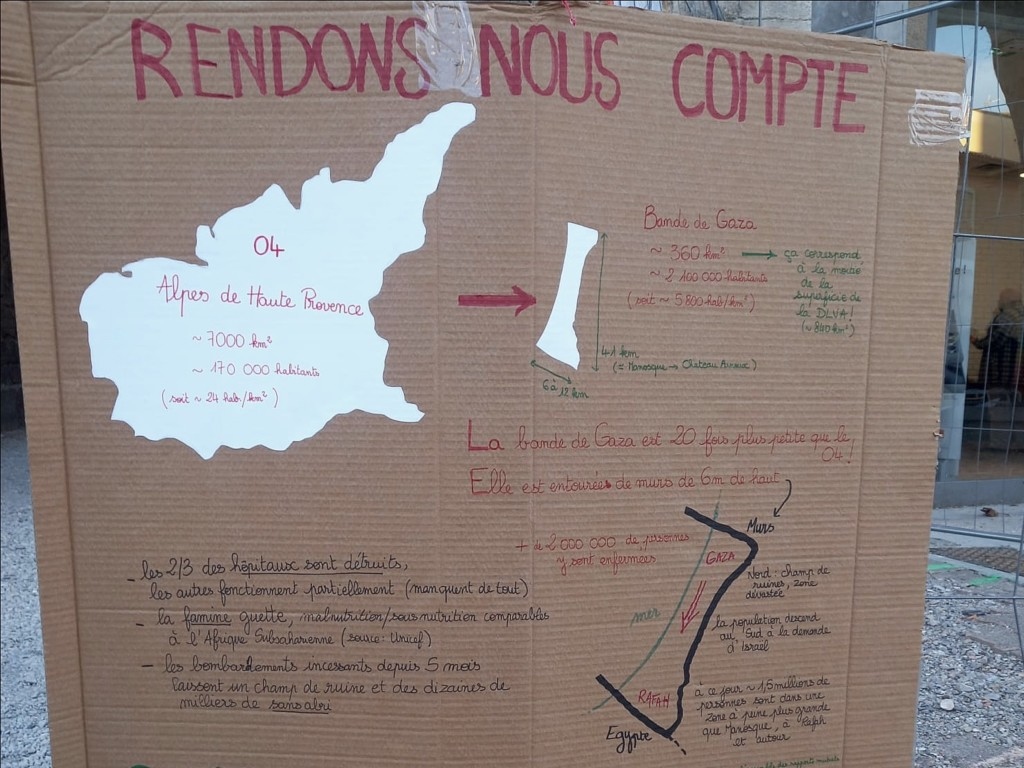 RENDONS NOUS COMPTE
04
Alpes de Haute Provence
~ 7000 km²
~ 170 000 habitants
(soit ~ 24 hab/km²)
Bande de Gaza
~ 360 km²
~ 2 100 000 habitants
(soit ~ 5800 hab/km²)
ça correspond
à la moitié
de la
superficie de
la DLVA!
(~ 840 km²)
41 km
(= Manosque → Chateau Arnoux)
6 à 12 km
La bande de Gaza est 20 fois plus petite que le
04!
Elle est entourées de murs de 6m de haut
+ de 2 000 000 de personnes
y sont enfermées
Murs
GAZA
mer
RAFAH
Egypte
Nord: champ de
ruines, zone
dévastée
la population descend
au Sud à la demande
d'Israel
à ce jour ~ 1,5 millions de
personnes sont dans une
zone à peine plus grande
que Manosque, à Rafah
et autour
- les 2/3 des hôpitaux sont détruits,
les autres fonctionnent partiellement (manquent de tout)
- la famine guette, malnutrition/sous nutrition comparables
à l'Afrique Subsaharienne (source: Unicef)
- les bombardements incessants depuis 5 mois
laissent un champ de ruine et des dizaines de
milliers de sans abri